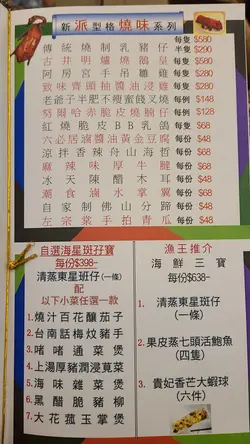 新派型格燒味系列
傳統燒制乳豬仔 每隻 $580 半隻 $290
古井明爐燒鵝皇 每隻 $580
阿房宮手吊雞雞 每隻 $280
致味齊頭抽醬油浸雞 每隻 $280
老爺子半肥不瘦蜜餞叉燒 每例 $128
努爾哈赤脆皮燒腩仔 每例 $128
紅燒脆皮BB乳鴿 每隻 $68
六必居滷醬油黃金豆腐 每份 $68
涼拌香辣舟山海哲 每份 $68
麻辣味厚牛𦟌 每份 $68
冰天陳醋木耳 每份 $48
潮食滷水拿翼 每份 $68
自家制佛山分蹄 每份 $68
左宗棠手拍青瓜 每份 $48
自選海星斑孖寶
每份$398-
清蒸東星斑仔(一條)
配
以下小菜任選一款
1. 燒汁百花釀茄子
2. 台南話梅炆豬手
3. 啫啫通菜煲
4. 上湯厚豬潤浸莧菜
5. 海味雜菜煲
6. 黑醋脆豬柳
7. 大花菰玉掌煲
漁王推介
海鮮三寶
每份$638-
1. 清蒸東星斑仔
(一條)
2. 果皮蒸七頭活鮑魚
(四隻)
3. 貴妃香芒大蝦球
(六件)